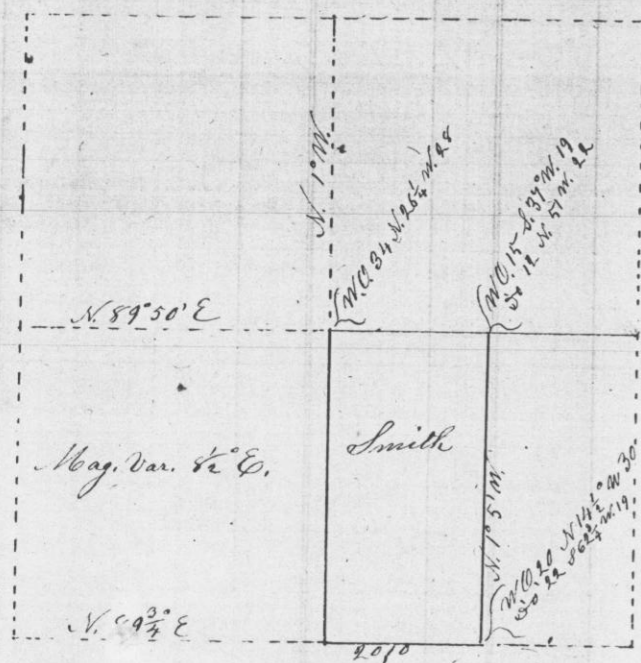 N. 1° W.
W.O. 34 N. 26¼ W. 28
W.O. 15 S. 37° W. 19
do 12 N. 51 W. 22
N. 89° 50' E
Smith
Mag. Var. 8½° E.
N. 1° 5' W.
W.O. 20 N 14½° W 30
do 22 S 62¾ W. 19
N. 89¾° E
20.10